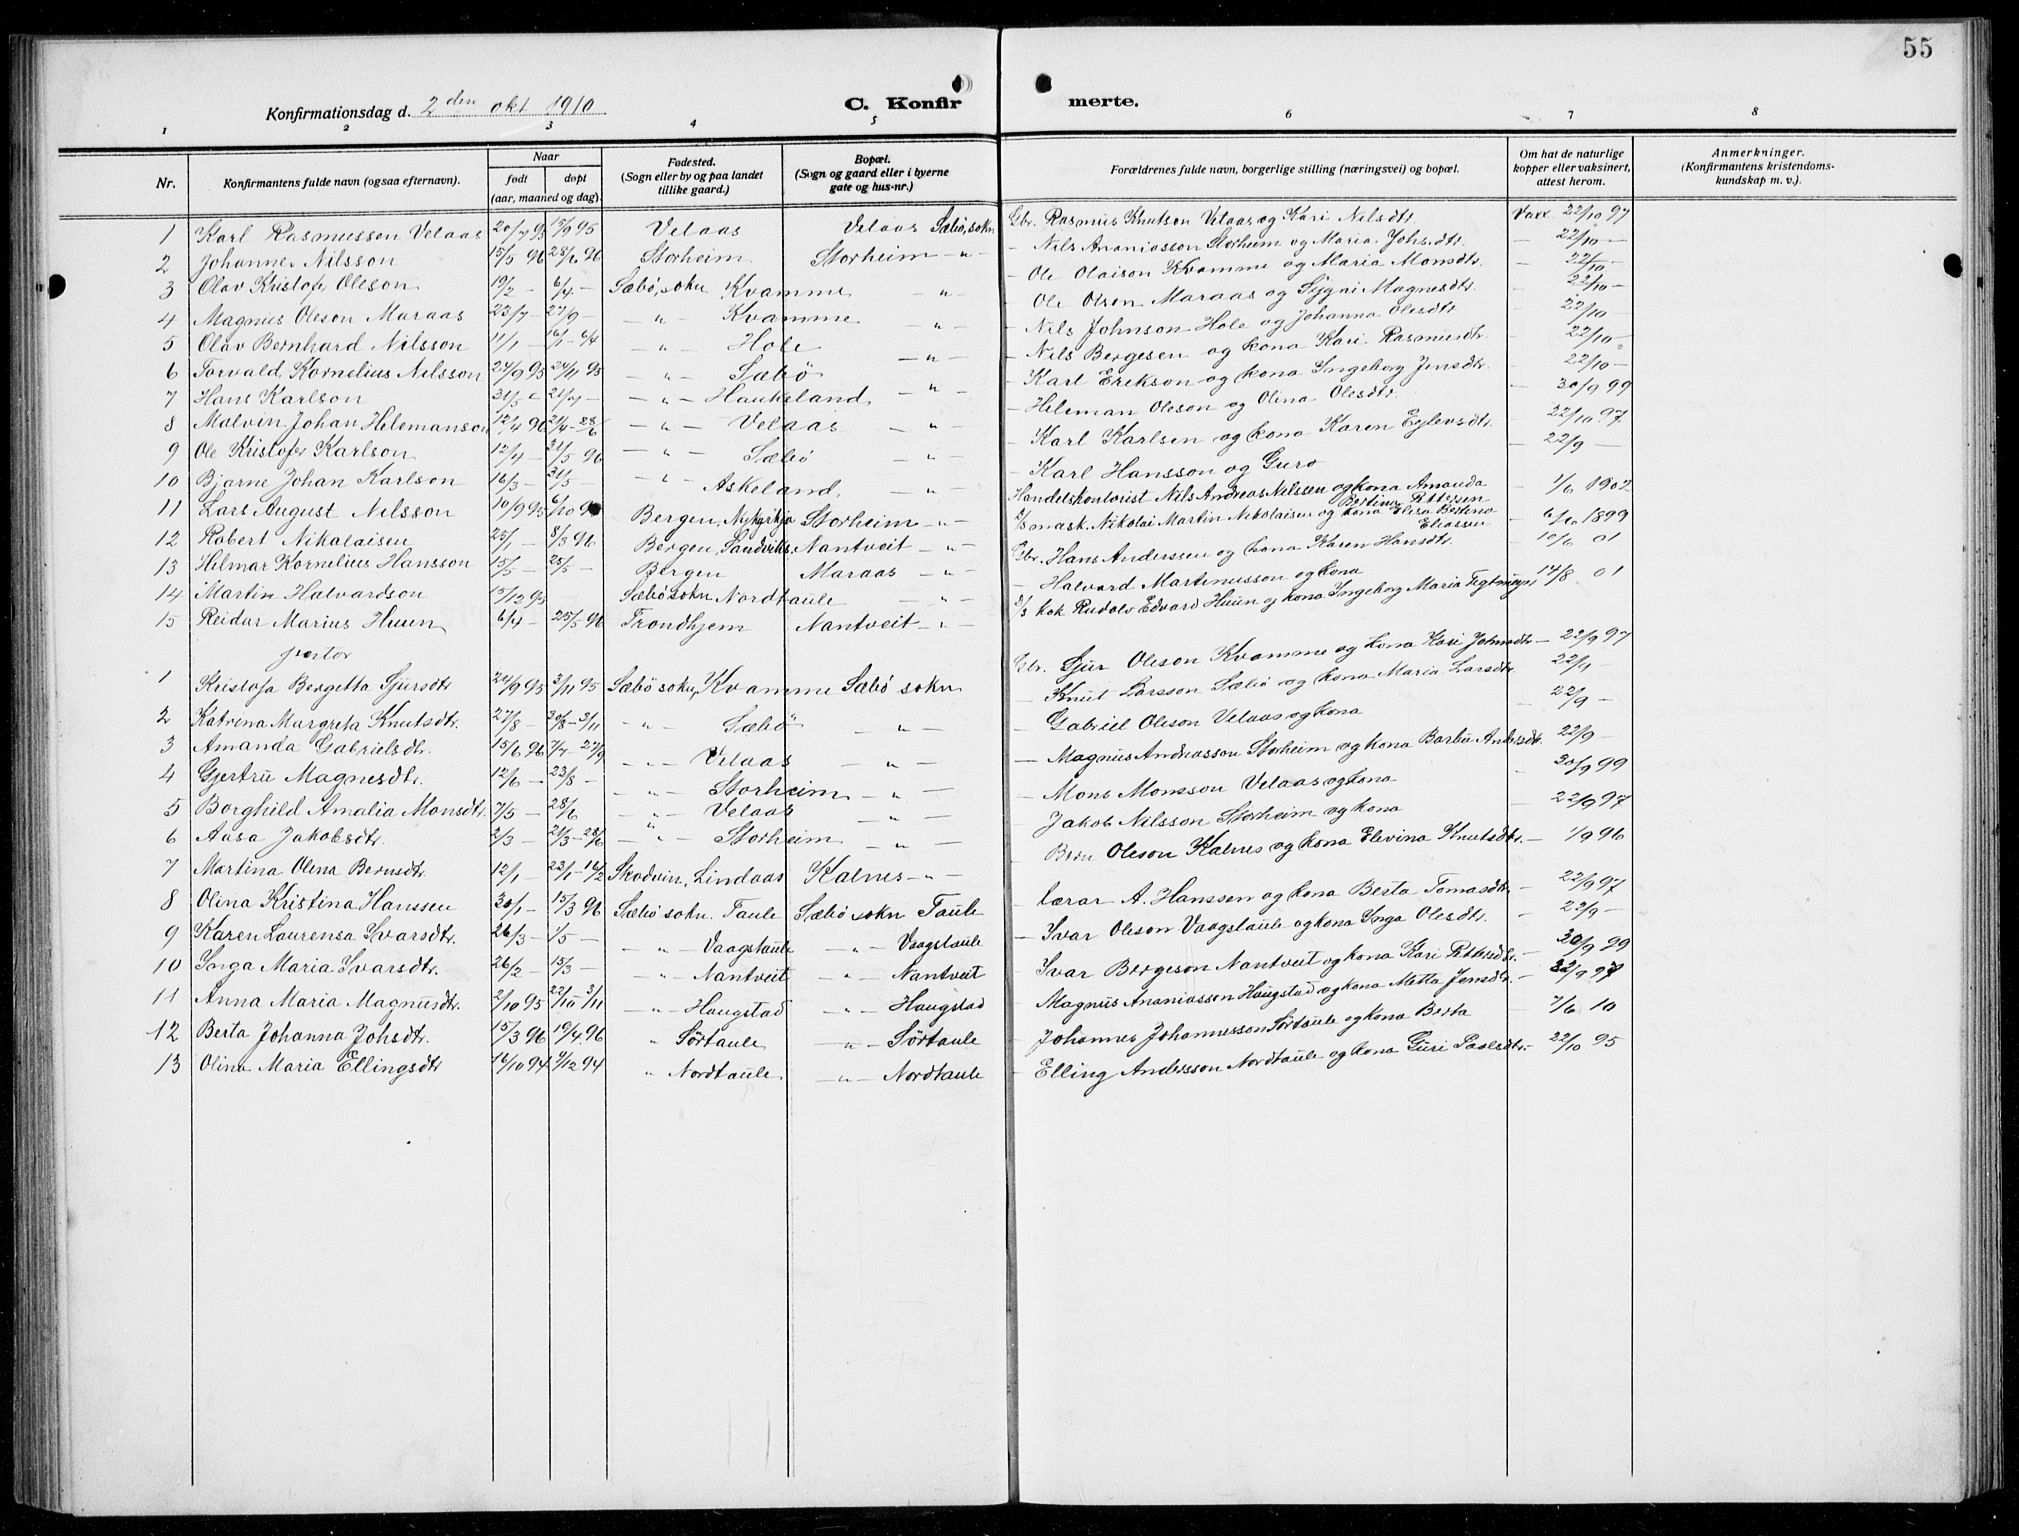 55
Konfirmationsdag d. 2den okt 1910
C. Konfirmerte.
1 2 3 4 5 6 7 8
Nr. Konfirmantens fulde navn (ogsaa efternavn). Naar født døpt (aar, maaned og dag). Fødested. (Sogn eller by og paa landet tillike gaard.) Bopæl. (Sogn og gaard eller i byerne gate og hus-nr.) Forældrenes fulde navn, borgerlige stilling (næringsvei) og bopæl. Om hat de naturlige kopper eller vaksinert, attest herom. Anmerkninger. (Konfirmantens kristendomskundskap m. v.).
1 Karl Rasmusson Velaas 20/7 95 15/9 95 Velaas Velaas Sæbö, sokn Gbr. Rasmus Knutson Velaas og Kari Nilsdtr. Vaxx 22/10 97
2 Johannes Nilsson 15/5 96 28/6 96 Storheim Storheim - " - - Nils Ananiasson Storheim og Maria Johsdtr. - 22/10 -
3 Olav Kristofer Oleson 19/2 - 6/4 - Sæbö, sokn Kvamme " - Ole Olaison Kvamme og Maria Monsdtr. - 22/10 -
4 Magnus Oleson Maraas 23/7 - 27/9 - " Kvamme " - Ole Olson Maraas og Sygni Magnesdtr. - 22/10 -
5 Olav Bernhard Nilsson 11/1 - 16/1 - 6/4 " Hole - " - - Nils Johnson Hole og Johanna Olesdtr - 22/10 -
6 Torvald Kornelius Nilsson 24/9 95 24/11 95 - " - Sæbö " - - Nils Bergesen og kona Kari Rasmusdtr. - 22/10 -
7 Hans Karlson 31/5 - 21/7 - - " - Haukeland - " - - Karl Erikson og kona Ingeborg Jensdtr. - 22/10 -
8 Malvin Johan Hilemanson 12/4 96 21/4 - 28/6 - " - Velaas - " - - Hileman Oleson og Olina Olesdtr. - 30/9 99
9 Ole Kristofer Karlson 12/4 - 31/5 96 - " - Sæbö - " - - Karl Karlsen og kona Karen Eylevsdtr. - 22/10 97
10 Bjarne Johan Karlson 16/3 - 31/5 - - " - Askeland - " - - Karl Hansson og Guro - 22/9 -
11 Lars August Nilsson 10/9 95 6/10 Bergen, Nykyrkja Storheim - " - Handelskontorist Nils Andreas Nilssen og kona Amanda Bertina Pettersen - 1/6 1902
12 Robert Nikolaisen 23/1 - 8/3 96 Bergen, Sandviks. Nantveit - " - mask. Nikolai Martin Nikolaisen og kona Elisa Bertina Eliassen - 6/10 1899
13 Hilmar Kornelius Hansson 15/5 - 25/5 - Bergen Maraas - " - Gbr. Hans Anderssen og kona Karen Hansdtr. - 10/6 01
14 Martin Halvardson 13/12 95 Sæbö sokn Nordtaule - " - - Halvard Martinusson og kona 14/8 01
15 Reidar Marius Huun 6/4 - 25/5 96 Trondhjem Nantveit - " - kok Rudolv Edvard Huun og kona Ingeborg Maria
jentor
1 Kristofa Bergetta Sjursdtr 24/9 95 3/11 95 Sæbö sokn, Kvamme Sæbö sokn Gbr. Sjur Oleson Kvamme og kona Kari Johnsdtr - 22/9 97
2 Katrina Margreta Knutsdtr. 27/8 - 30/8 - 3/11 " Sæbö - " - - Knut Larsson Sæbö og kona Maria Larsdtr. 22/9 -
3 Amanda Gabrielsdtr. 15/6 96 7/4 - 27/9 - " - Velaas - " - Gabriel Oleson Velaas og kona - 22/9 -
4 Gjertru Magnesdtr. 12/6 - 23/8 - - " - Storheim - " - - Magnus Andreasson Storheim og kona Barbu Andersdtr. 22/9 -
5 Borghild Amalia Monsdtr. 7/5 - 28/6 - " - Velaas - " - - Mons Monsson Velaas og kona - 30/9 99
6 Aasa Jakobsdtr 2/3 - 21/3 - 28/6 - " - Storheim - " - Jakob Nilsson Storheim og kona - 22/9 97
7 Martina Olena Bernsdtr. 12/1 - 23/1 - 16/2 Skodvin, Lindaas Kalnes - " - - Bern Oleson Kalnes og kona Elevina Knutsdtr. - 1/9 96
8 Olina Kristina Hanssen 30/1 - 15/3 96 Sæbö sokn. Taule Sæbö sokn Taule lærar A. Hanssen og kona Berta Tomasdtr - 22/9 97
9 Karen Laurensa Ivarsdtr. 26/3 - 1/5 - " - Vaagstaule " - Vaagstaule - Ivar Oleson Vaagstaule og kona Inga Olesdtr. - 22/9 -
10 Inga Maria Ivarsdtr. 26/2 - 15/3 - " - Nantveit " - Nantveit Ivar Bergeson Nantveit og kona Kari Pettersdtr. - 30/9 99
11 Anna Maria Magnusdtr. 2/10 95 22/10 - 3/11 " - Haugstad " - Haugstad Magnus Ananiasson Haugstad og kona Metta Jensdtr. - 22/9 97
12 Berta Johanna Johsdtr. 15/3 96 19/4 96 " Sörtaule - " - Sörtaule Johannes Johannesson Sörtaule og kona Berta 7/6 10
13 Olina Maria Ellingsdtr 16/10 94 9/12 94 " Nordtaule - " - Nordtaule - Elling Andersson Nordtaule og kona Guri Paalsdtr. - 22/10 95